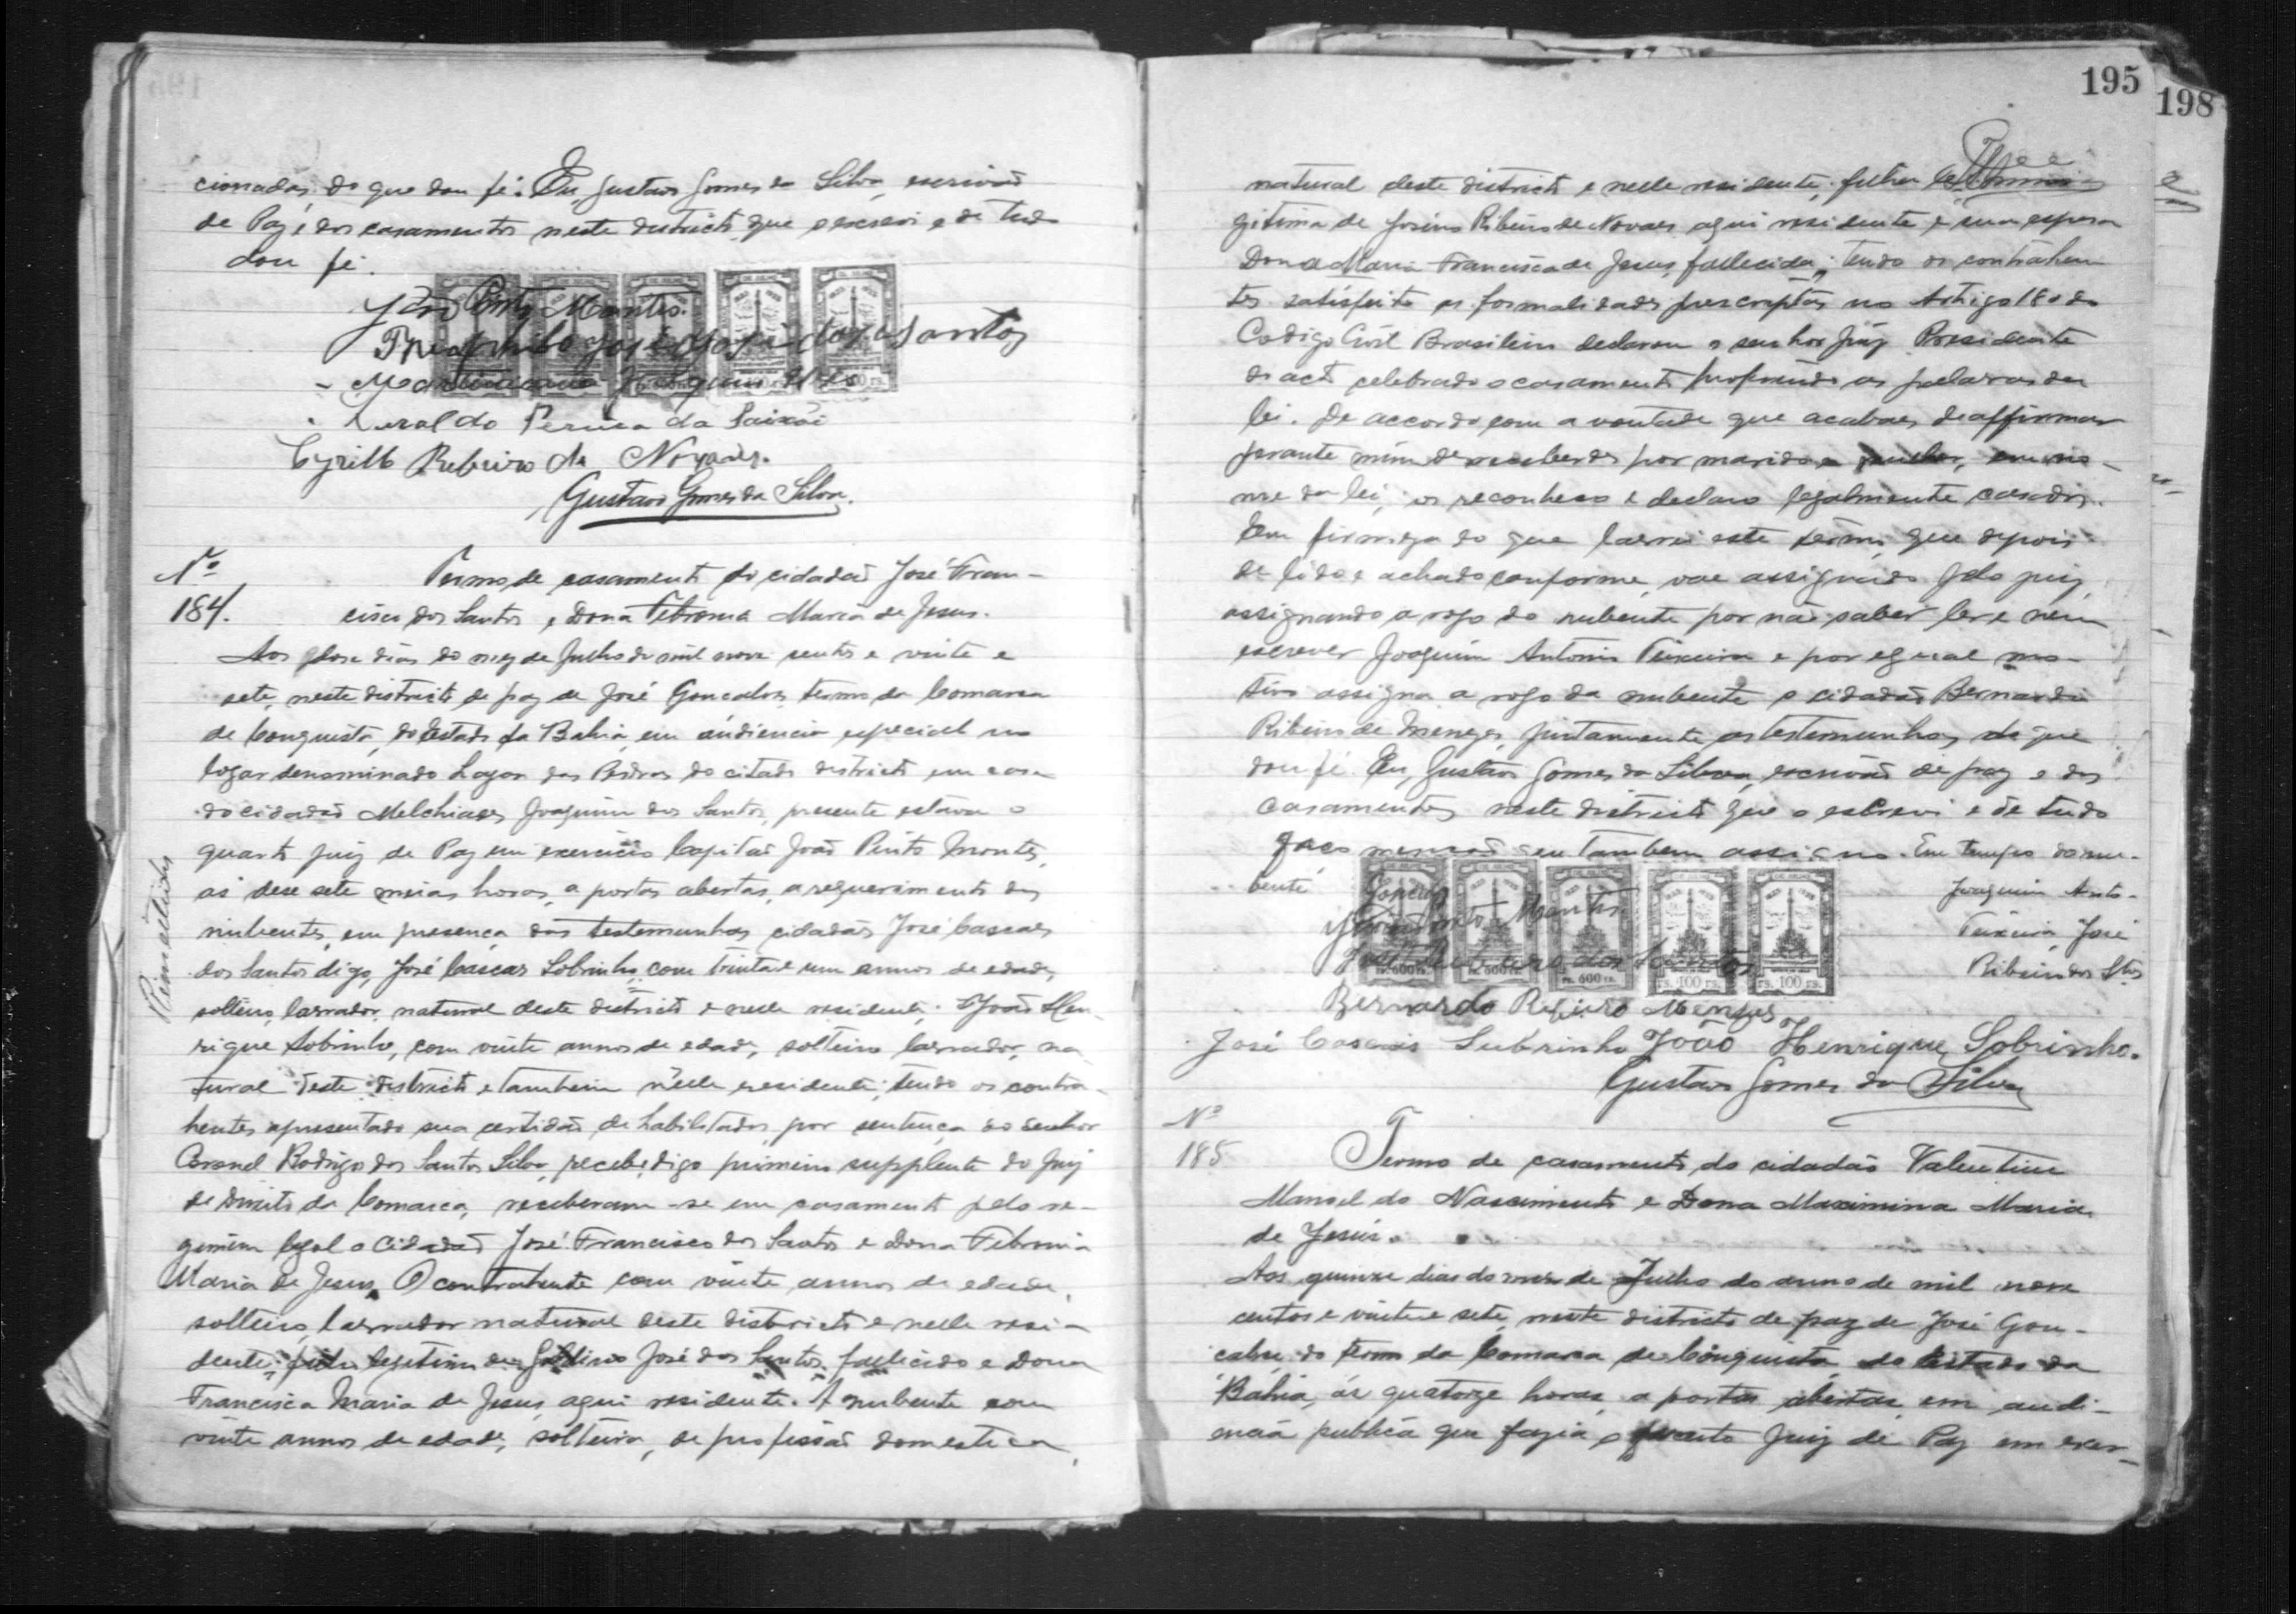 cionadas, do que dou fé. Eu, Gustavo Gomes da Silva, escrivão
de Paz e dos casamentos neste districto que o escrevi e de tudo
dou fé.
João Pinto Montes.
Theophilo José dos Santos
Pereira da Paixão
Cyrillo Ribeiro de Novaes.
Gustavo Gomes da Silva.
Nº
184.
Termo de casamento do cidadão José Fran-
cisco dos Santos e Dona Febronia Maria de Jesus.
Aos dose dias do mez de Julho de mil nove centos e vinte e
sete, neste districto de paz de José Gonçalves, termo da Comarca
de Conquista, do Estado da Bahia, em audiencia especial no
logar denominado Lagoa das Pedras do citado districto em casa
do cidadão Melchiades Joaquim dos Santos, presente estava o
quarto juiz de Paz em exercicio Capitão João Pinto Montes,
ás dese sete meias horas, a portas abertas, a requerimento dos
nubentes, em presença das testemunhas cidadãos José Cascaes
dos Santos digo, José Cascaes Sobrinho, com trinta e um annos de edade,
solteiro, lavrador, natural deste districto e nelle residente; João Hen-
rique Sobrinho, com vinte annos de edade, solteiro lavrador, na
tural deste districto e tambem nelle residente; tendo os contra-
hentes apresentado sua certidão de habilitados, por sentença do Senhor
Coronel Rodrigo dos Santos Silva, recebe, digo primeiro supplente do Juiz
de Direito da Comarca, receberam-se em casamento pelo re-
gimem legal o Cidadão José Francisco dos Santos e Dona Febronia
Maria de Jesus. O contrahente com vinte annos de edade,
solteiro, lavrador natural deste districto e nelle resi-
dente, filho legitimo de José dos Santos, fallecido e Dona
Francisca Maria de Jesus, aqui residente. A nubente com
vinte annos de edade, solteira, de profissão domestica,
195
198
natural deste districto e nelle residente, filha le
gitima de Josino Ribeiro de Novaes aqui residente e sua esposa
Dona Maria Francisca de Jesus, fallecida; tendo os contrahen
tes satisfeito as formalidades prescriptas no Artigo 180 do
Codigo Civil Brasileiro declarou o senhor Juiz Presidente
do acto celebrado o casamento proferindo as palavras da
lei. De accordo com a vontade que acabaes de affirmar
perante mim de receberdes por marido e mulher, em no-
me da lei, os reconheco e declaro legalmente casados.
Em firmeza do que lavrei este termo, que depois
de lido e achado conforme, vae assignado pelo juiz,
assignando a rogo do nubente por não saber ler e nem
escrever Joaquim Antonio Teixeira e por egual mo-
tivo assigna a rogo da nubente o cidadão Bernardo
Ribeiro de Menezes, juntamente as testemunhas, do que
dou fé. Eu, Gustavo Gomes da Silva, escrivão de paz e dos
casamentos neste districto que o escrevi e de tudo
faco menção e eu tambem assigno. Em tempo do nu-
bente
Joaquim Anto-
João Pinto Montes
Teixeira, José
Ribeiro dos Stos
RS. 600 RS.
RS. 600 RS.
RS. 600 RS.
RS. 100 RS.
RS. 100 RS.
Bernardo Ribeiro Menezes
José Cascais Subrinho João Henrique Sobrinho.
Gustavo Gomes da Silva
Nº
185
Termo de casamento do cidadão Valentim
Manoel do Nascimento e Dona Maximina Maria
de Jesus.
Aos quinze dias do mez de Julho do anno de mil nove
centos e vinte e sete, neste districto de paz de José Gon-
calves, do termo da Comarca de Conquista, do Estado da
Bahia, ás quatorze horas, a portas abertas, em audi-
encia publica que fazia o quarto Juiz de Paz em exer-